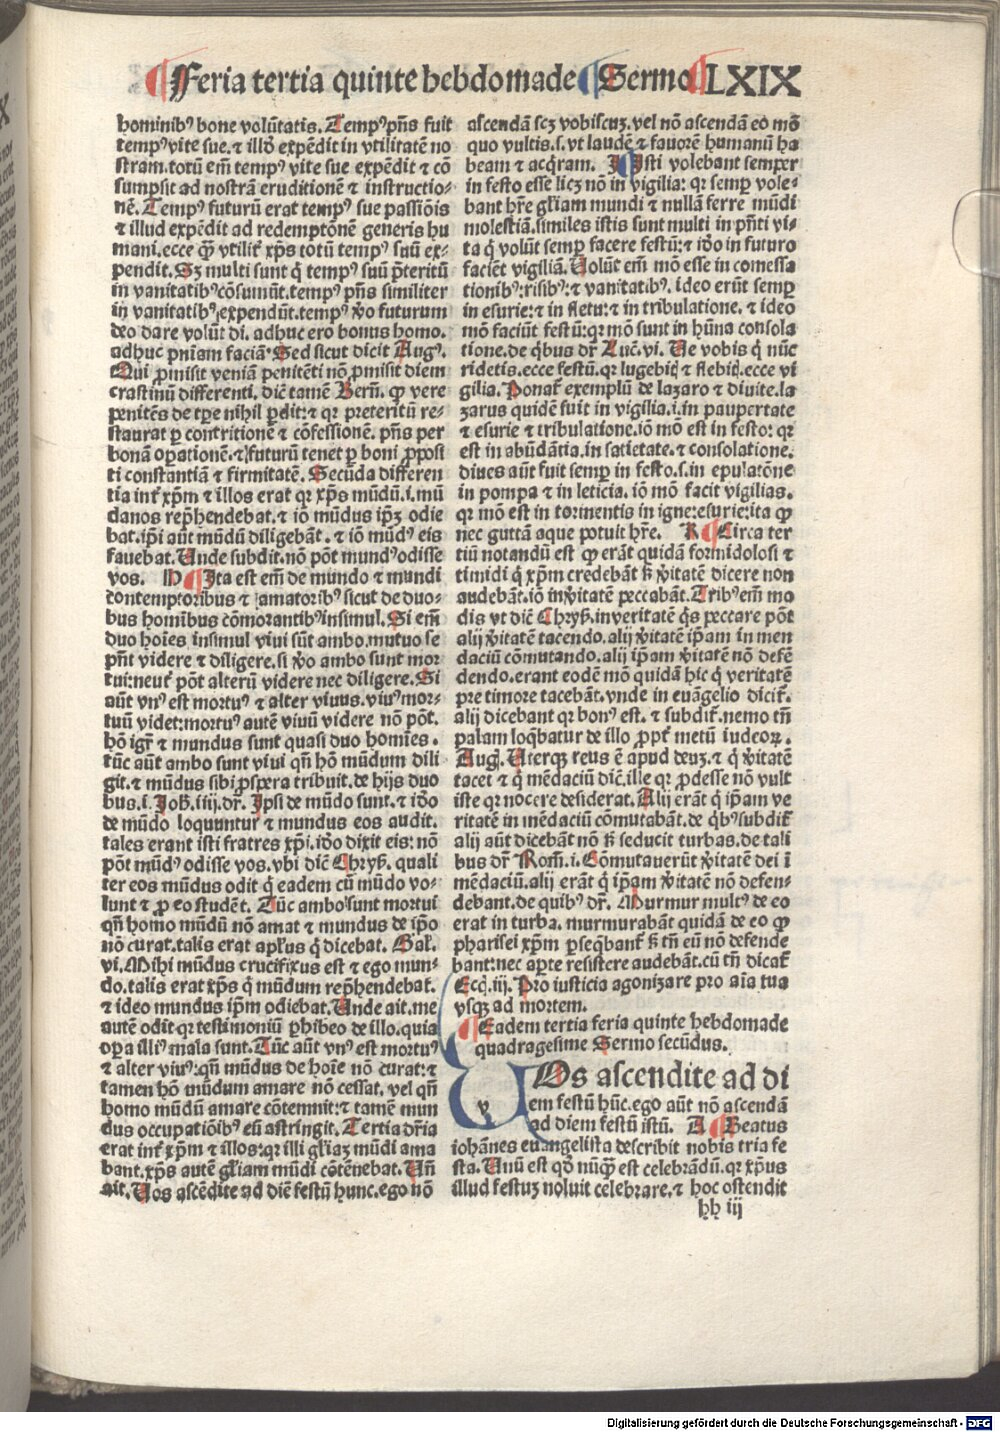 Feria tertia quinte hebdomade Sermo LXIX
hominibꝰ bone volūtatis. Tempꝰ pn̄s fuit
tempꝰ vite sue. ⁊ illd̓ expēdit in vtilitatē no
stram. totū em̄ tempꝰ vite sue expēdit ⁊ cō
sumpsit ad nostrā eruditionē ⁊ instructio-
nē. Tempꝰ futurū erat tempꝰ sue passiōis
⁊ illud expēdit ad redemptōnē generis hu
mani. ecce ꝙ vtilit̓ xp̄s totū tempꝰ suū ex-
pendit. Sꝫ multi sunt q̇ tempꝰ suū p̄teritū
in vanitatibꝰ cōsumūt. tempꝰ pn̄s similiter
in vanitatibꝰ expendūt. tempꝰ v̓o futurum
deo dare volūt di. adhuc ero bonus homo.
adhuc pn̄iam faciā. Sed sicut dicit Augꝰ.
Qui ꝓmisit veniā penitēti nō ꝓmisit diem
crastinū differenti. dic̄ tamē Bern̄. ꝙ vere
penitēs de tꝑe nihil ꝑdit: ⁊ qr preteritū re-
staurat ꝑ contritionē ⁊ cōfessionē. pn̄s per
bonā oꝑationē. ⁊ futurū tenet ꝑ boni ꝓposi
ti constantiā ⁊ firmitatē. Secūda differen
tia int̓ xp̄m ⁊ illos erat qr xp̄s mūdū .i. mū
danos rep̄hendebat. ⁊ iō mūdus ip̄ꝫ odie
bat. ip̄i aūt mūdū diligebāt. ⁊ iō mūdꝰ eis
fauebat. Unde subdit. nō pōt mundꝰ odisse
vos. Ita est em̄ de mundo ⁊ mundi
contemptoribus ⁊ amatoribꝰ sicut de duo-
bus homībus cōmorantibꝰ insimul. Si em̄
duo hoīes insimul viui sūt ambo. mutuo se
pn̄t videre ⁊ diligere. si v̓o ambo sunt mor
tui: neut̓ pōt alterū videre nec diligere. Si
aūt vnꝰ est mortuꝰ ⁊ alter viuus. viuꝰ mor-
tuū videt: mortuꝰ autē viuū videre nō pōt.
hō igr̄ ⁊ mundus sunt quasi duo homīes.
tūc aūt ambo sunt viui qn̄ hō mūdum dili
git. ⁊ mūdus sibi ꝓspera tribuit. de hijs duo
bus .i. Joh̄. iiij. dr̄. Ipsi de mūdo sunt. ⁊ iđo
de mūdo loquuntur ⁊ mundus eos audit.
tales erant isti fratres xp̄i. iđo dixit eis: nō
pōt mūdꝰ odisse vos. vbi dic̄ Chryẜ. quali
ter eos mūdus odit q̇ eadem cū mūdo vo-
lunt ⁊ ꝓ eo studēt. Tūc ambo sunt mortui
qn̄ homo mūdū nō amat ⁊ mundus de ip̄o
nō curat. talis erat apl̓us q̇ dicebat. Gal̓.
vi. Mihi mūdus crucifixus est ⁊ ego mun-
do. talis erat xp̄s q̇ mūdum rep̄hendebat.
⁊ ideo mundus ip̄m odiebat. Unde ait. me
autē odit qr testimoniū ꝑhibeo de illo. quia
oꝑa illiꝰ mala sunt. Tūc aūt vnꝰ est mortuꝰ
⁊ alter viuꝰ: qn̄ mūdus de hoīe nō curat: ⁊
tamen hō mūdum amare nō cessat. vel qn̄
homo mūdū amare cōtemnit: ⁊ tamē mun
dus occupatiōibꝰ eū astringit. Tertia dr̄ia
erat int̓ xp̄m ⁊ illos: qr illi gl̓iaꝫ mūdi ama
bant. xp̄s autē gl̓iam mūdi cōtēnebat. Un̄
ait. Uos ascēdite ad diē festū hunc. ego nō
ascendā scꝫ vobiscuꝫ. vel nō ascendā eo mō
quo vultis. s. vt laudē ⁊ fauorē humanū ha
beam ⁊ acq̇ram. Isti volebant semper
in festo esse licꝫ nō in vigilia: qr semꝑ vole-
bant hr̄e gl̓iam mundi ⁊ nullā ferre mūdi
molestiā. similes istis sunt multi in pn̄ti vi-
ta q̇ volūt semꝑ facere festū: ⁊ iđo in futuro
faciēt vigiliā. Uolūt em̄ mō esse in comessa
tionibꝰ: risibꝰ: ⁊ vanitatibꝰ. ideo erūt semꝑ
in esurie: ⁊ in fletu: ⁊ in tribulatione. ⁊ ideo
mō faciūt festū: qr mō sunt in hūna consola
tione. de q̇bus dr̄ Luc̄. vi. Ue vobis q̇ nūc
ridetis. ecce festū. qr lugebiꝭ ⁊ flebiꝭ. ecce vi
gilia. Ponat̓ exemplū de lazaro ⁊ diuite. la
zarus quidē fuit in vigilia .i. in paupertate
⁊ esurie ⁊ tribulatione. iō mō est in festo: qr
est in abūdātia. in satietate. ⁊ consolatione.
diues aūt fuit semꝑ in festo .s. in epulatōne
in pompa ⁊ in leticia. iō mō facit vigilias.
qr mō est in tormentis in igne: esurie: ita ꝙ
nec guttā aque potuit hr̄e. K Circa ter
tiū notandū est ꝙ erāt quidā formidolosi ⁊
timidi q̇ xp̄m credebāt ẜꝫ v̓itatē dicere non
audebāt. iō in v̓itatē peccabāt. Tribꝰ em̄ mo
dis vt dic̄ Chryẜ. in veritatē q̇s peccare pōt
alij v̓itatē tacendo. alij v̓itatē ip̄am in men
daciū cōmutando. alij ip̄am v̓itatē nō defē
dendo. erant eodē mō quidā hic q̇ veritatē
pre timore tacebāt. vnde in euāgelio dicit̓.
alij dicebant qr bonꝰ est. ⁊ subdit̓. nemo tn̄
palam loq̄batur de illo ꝓpt̓ metū iudeoꝝ.
Augꝰ. Uterqꝫ reus ē apud deuꝫ. ⁊ q̇ v̓itatē
tacet ⁊ q̇ mēdaciū dic̄. ille qr ꝓdesse nō vult
iste qr nocere desiderat. Alij erāt q̇ ip̄am ve
ritatē in mēdaciū cōmutabāt. de q̇bꝰ subdit̓
alij aūt dicebāt nō ẜꝫ seducit turbas. de tali
bus dr̄ Rom̄. i. Cōmutauerūt v̓itatē dei ī
mēdaciū. alij erāt q̇ ip̄am v̓itatē nō defen-
debant. de quibꝰ dr̄. Murmur multꝰ de eo
erat in turba. murmurabāt quidā de eo ꝙ
pharisei xp̄m ꝑseq̄bant̓ ẜꝫ tn̄ eū nō defende
bant: nec aꝑte resistere audebāt. cū tn̄ dicat̓
Eccꝭ. iij. Pro iusticia agonizare pro aīa tua
vsqꝫ ad mortem.
Eadem tertia feria quinte hebdomade
quadragesime Sermo secūdus.
UOs ascendite ad di
em festū hūc. ego aūt nō ascendā
ad diem festū istū. A Beatus
iohānes euangelista describit nobis tria fe
sta. Unū est qđ nūꝙ est celebrādū. qr xp̄us
illud festuꝫ noluit celebrare. ⁊ hoc ostendit
hh iij
Digitalisierung gefördert durch die Deutsche Forschungsgemeinschaft - DFG